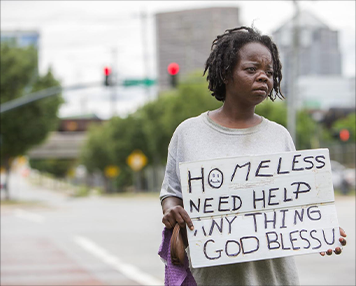 HOMELESS
NEED HELP
ANY THING
GOD BLESS U